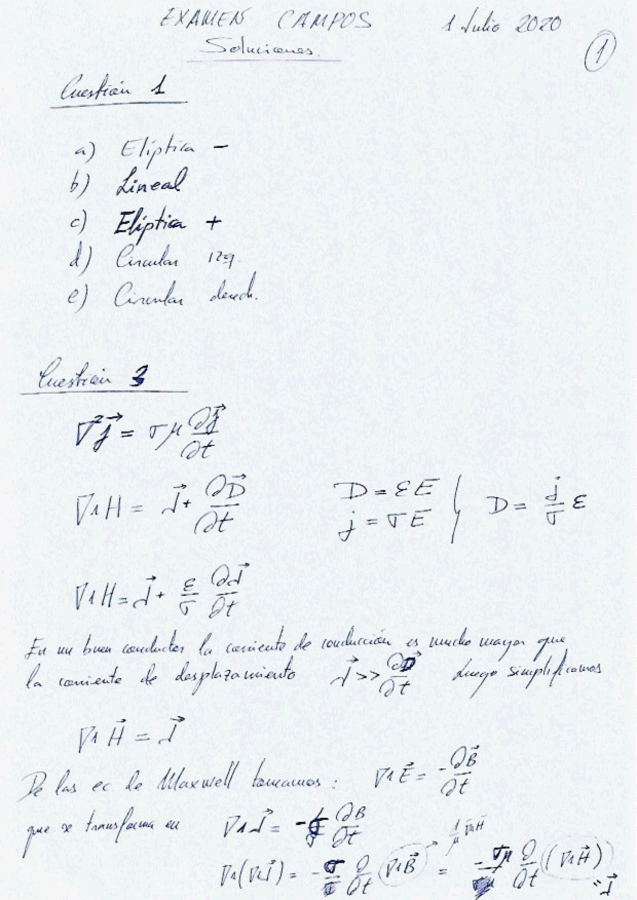 EXAMEN CAMPOS 1 Julio 2020
Soluciones.
1
Cuestión 1
a) Elíptica -
b) Lineal
c) Elíptica +
d) Circular izq.
e) Circular derech.
Cuestión 3
∇²j⃗ = σμ ∂j⃗/∂t
∇∧H = J⃗ + ∂D⃗/∂t D = εE j = σE } D = j/σ ε
∇∧H = J⃗ + ε/σ ∂J⃗/∂t
En un buen conductor la corriente de conducción es mucho mayor que
la corriente de desplazamiento J⃗ >> ∂D/∂t Luego simplificamos
∇∧H⃗ = J⃗
De las ec de Maxwell tomamos: ∇∧E⃗ = -∂B⃗/∂t
que se transforma en ∇∧J⃗ = - ∂B/∂t
∇∧(∇∧J⃗) = - ∂/∂t (∇∧B⃗) = -σμ ∂/∂t (∇∧H⃗) = J⃗